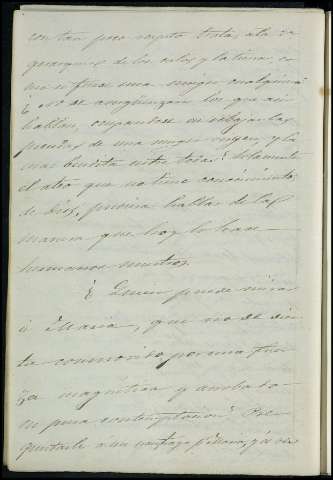 con tan poco respeto trata, á la se
quierquiera de los cielos y la tierra, co
mo si fuera una mujer cualquiera
¿ no se avergüenzan los que asi
hablan, ocupandose en rebajar las
prendas de una mujer virgen, y la
mas bendita entre todas? Solamente
el ateo que no tiene conocimiento
de Dios, pudiera hablar de la
manera que hoy lo hacen
hermanos nuestros.
¿ Quien puede mirar
á Maria, que no se sien
ta conmovido por una fuer
za magnética y arroba
en pura contemplacion? Pre
guntadle á un